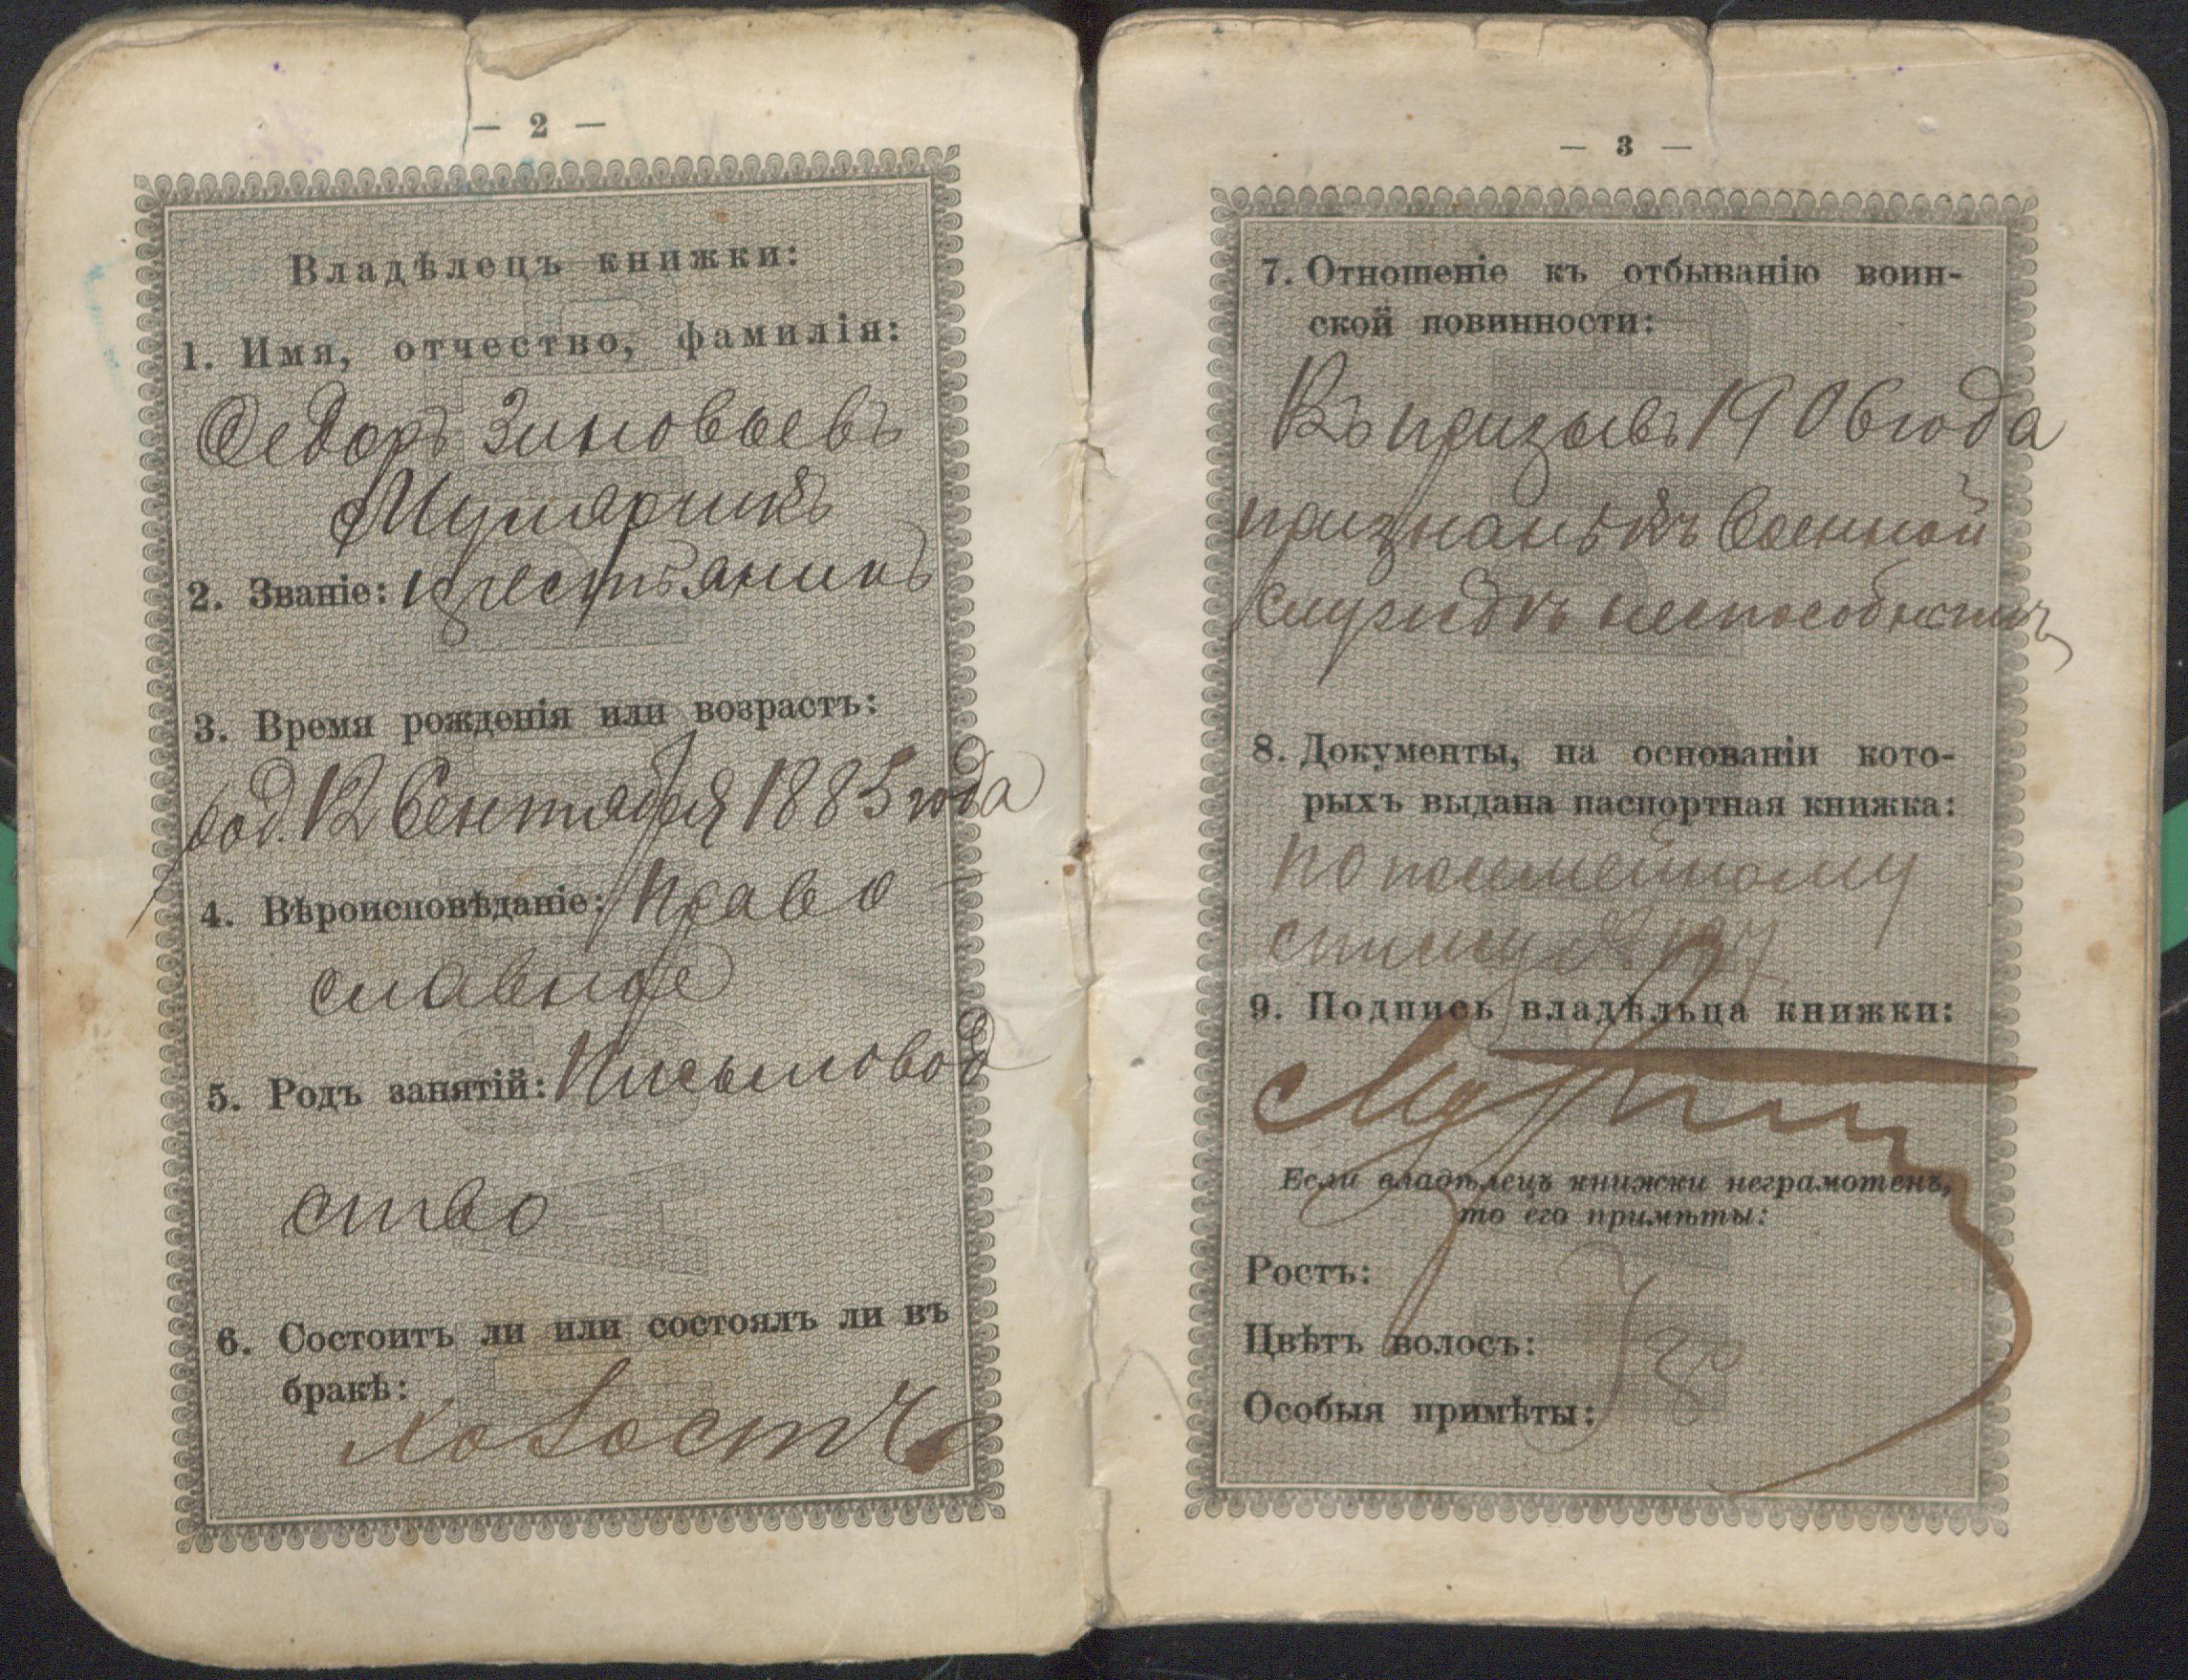 — 2 —
Владѣлецъ книжки:
1. Имя, отчество, фамилія:
Ѳедоръ Зиновьевъ
Мулярчикъ
2. Званіе: крестьянинъ
3. Время рожденія или возрастъ:
род. 12 Сентября 1885 года
4. Вѣроисповѣданіе: Право
славное
5. Родъ занятій: Письмовод
ство
6. Состоитъ ли или состоялъ ли въ
бракѣ:
Холостъ
— 3 —
7. Отношеніе къ отбыванію воин-
ской повинности:
Въ призывъ 1906 года
признанъ къ военной
службѣ неспособнымъ
8. Документы, на основаніи кото-
рыхъ выдана паспортная книжка:
по посемейному
списку № 197
9. Подпись владѣльца книжки:
Если владѣлецъ книжки неграмотенъ,
то его примѣты:
Ростъ:
Цвѣтъ волосъ:
Особыя примѣты: